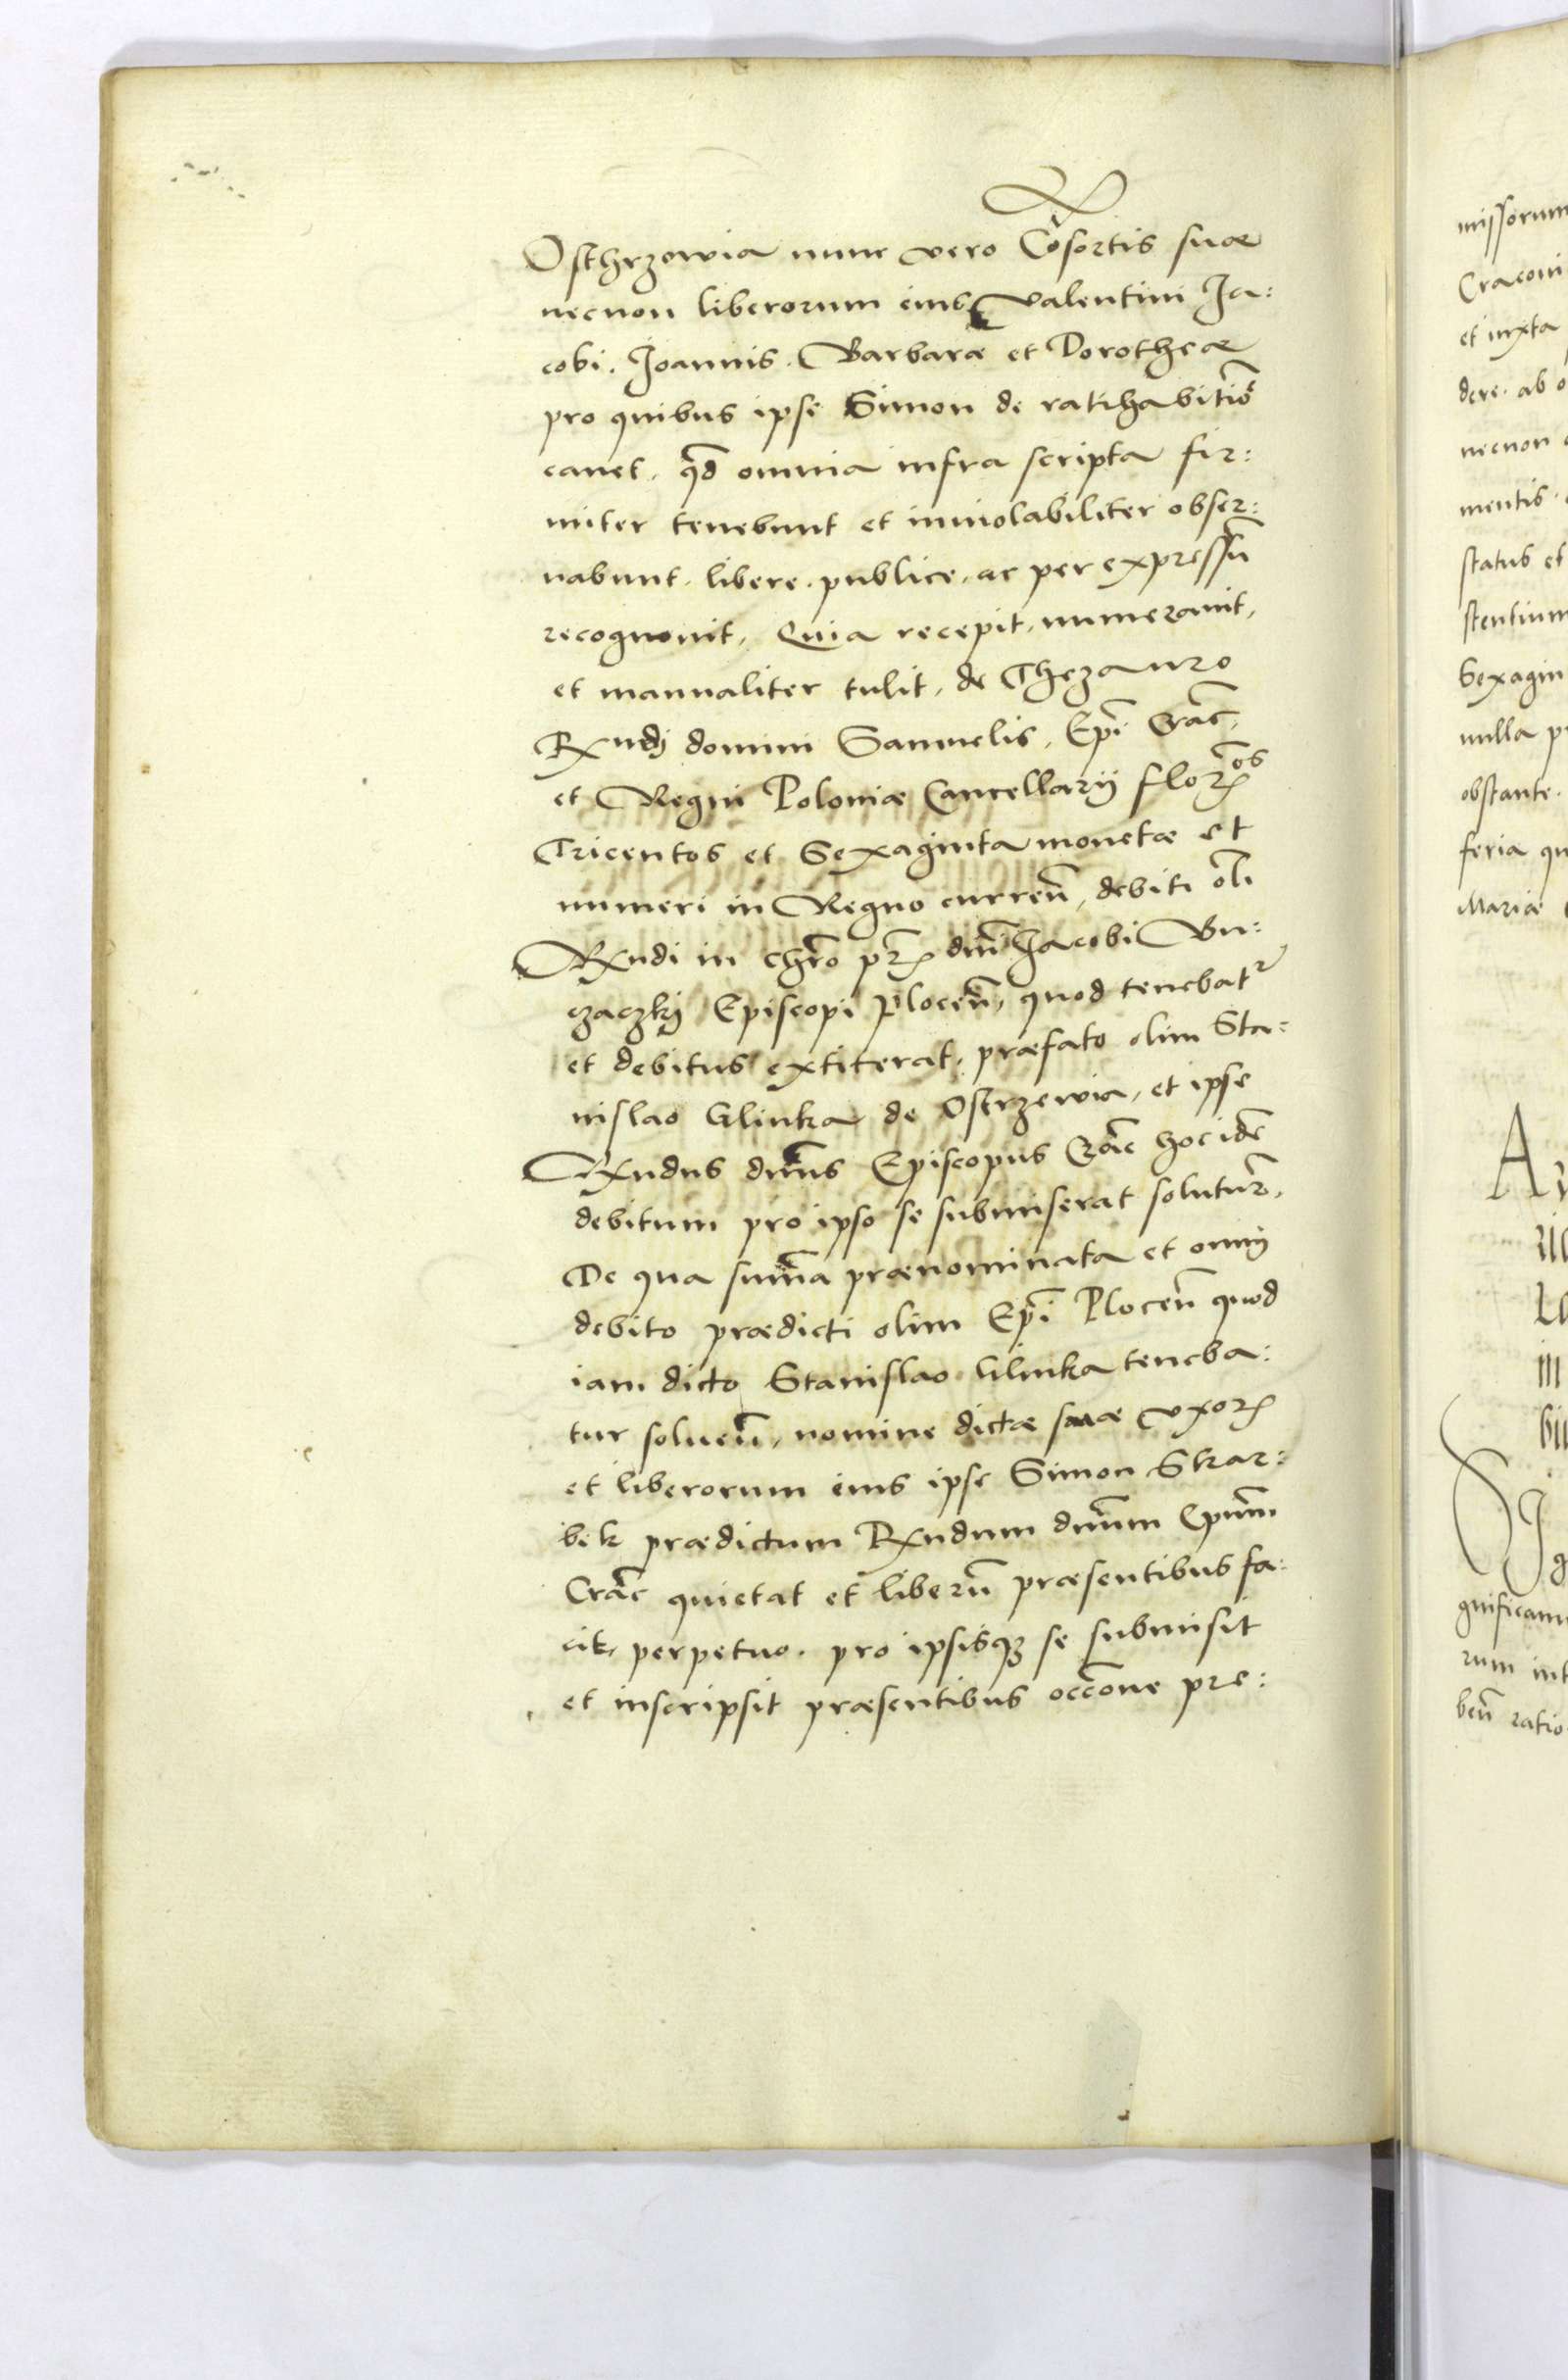 Osthrzowia nunc vero Cōsortis suæ
necnon liberorum eius Valentini Ja:
cobi. Joannis. Barbaræ et Dorotheæ
pro quibus ipse Simon de ratihabitiōe
cauet, qđ omnia infra scripta fir:
miter tenebunt et inuiolabiliter obser:
uabunt. libere. publice. ac per expressū
recognouit, Quia recepit, numerauit,
et manualiter tulit, de Thezauro
Rxndj domini Samuelis, Epī Crac̄,
et Regni Poloniæ Cancellarij floren̄os
Tricentos et Sexaginta monetæ et
numeri in Regno curren̄, debiti olī
Rxndi in chr̄o pr̄is dn̄i Jacobi Bu:
czaczkj Episcopi Plocen̄, quod tenebatr
et debitus extiterat, præfato olim Sta:
nislao Glinka de Ostrzewia, et ipse
Rxndus dn̄us Episcopus Crac̄ hoc idē
debitum pro ipso se submiserat solutur̄,
De qua sum̄a prænominata et omnj
debito prædicti olim Epī Plocen̄ quod
iam dicto Stanislao Glinka teneba:
tur soluen̄, nomine dictæ suæ Vxor̄is
et liberorum eius ipse Simon Skar:
bek prædictum Rxndum dn̄um Ep̄um
Crac̄ quietat et liberū præsentibus fa:
cit, perpetuo. pro ipsisq3 se submisit
et inscripsit præsentibus occ̄one pre:
missorum
Cracoui
et iuxta
dere. ab o
necnon
mentis.
status et
stentium
Sexagin
nulla p
obstante.
feria qu
Mariæ
gnificam
rum int
ben̄ ratio